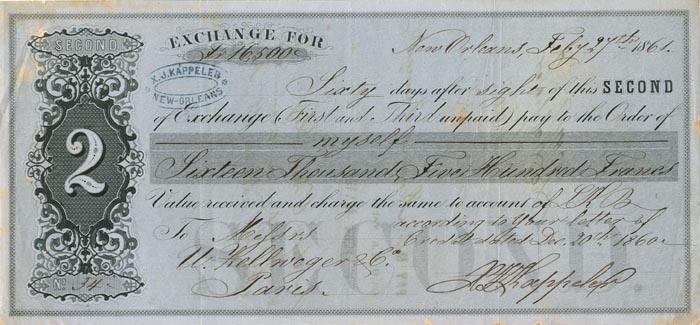 SECOND
2
No 34
EXCHANGE FOR
Fr 16,500
X. J. KAPPELER
NEW-ORLEANS
New Orleans, Feby 27th 1861.
Sixty days after sight of this SECOND
of Exchange (First and Third unpaid) pay to the Order of
myself
Sixteen Thousand, Five Hundred Francs
Value received and charge the same to account of
according to your letter of
Credit dated Dec. 20th 1860.
To Messrs
& Co
Paris.
Kappeler
SECOND.